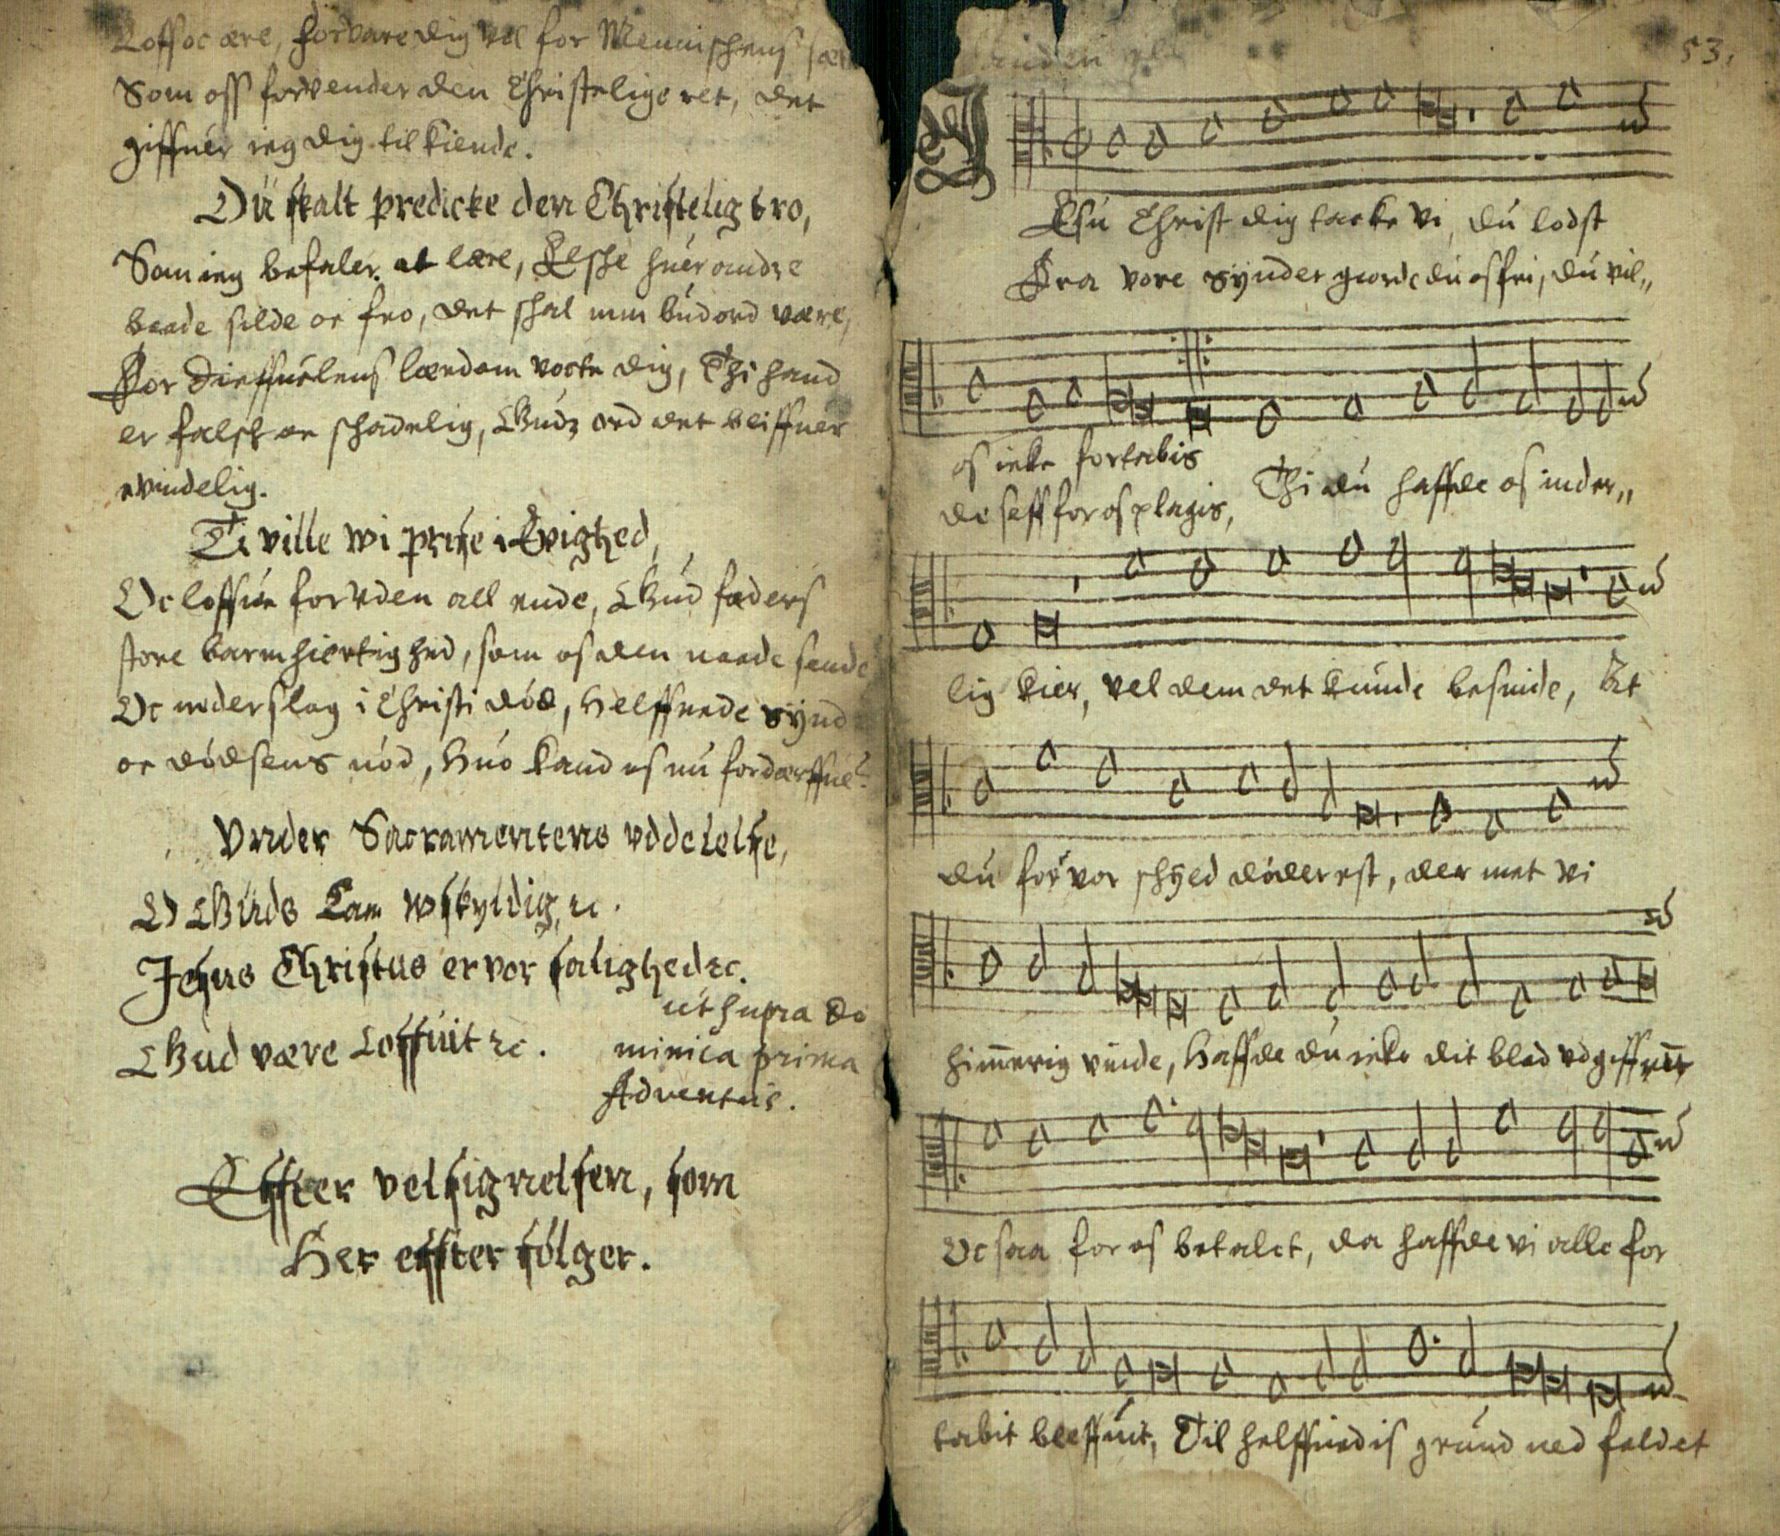 Loff oc ære, forvare dig vel for Mennischens
Som oss forvender den Christelige ret, det
giffuer ieg dig til kiende.
Du skalt predicke den Christelig tro,
Som ieg befaler at lære, Elske huer andre
baade silde oc fro, det skal min budord være,
For Dieffuelens lærdom vocte dig, Thi hand
er falsk oc skadelig, Gudz ord det bliffuer
evindelig.
Ti ville wi prise i Evighed,
Oc loffue foruden all ende, Gud faders
store barmhiertighed, som os den naade sende
Oc nederslag i Christi død, Helffuede synd
oc dødsens nød, Huo kand os nu fordærffue?
Vnder Sacramentens vddelelse,
O Guds Lam wskyldig, ꝛc.
Jesus Christus er vor salighed ꝛc.
ut supra Do
Gud være Loffuit ꝛc. minica prima
Adventus.
Effter velsignelsen, som
Her effter følger.
53.
JEsu Christ dig tacke vi, du lodst
Fra vore synder giorde du os fri, du vil„
os icke fortabis
de self for os plagis, Thi du haffde os inder„
lig kier, vel dem det kunde besinde, At
du for vor skyld død erst, der met vi
him̅erig vinde, Haffde du icke dit blod vdgiffuet
Oc saa for os betalet, da haffde vi alle for
tabit bleffuit, Til helffuedis grund ned faldet